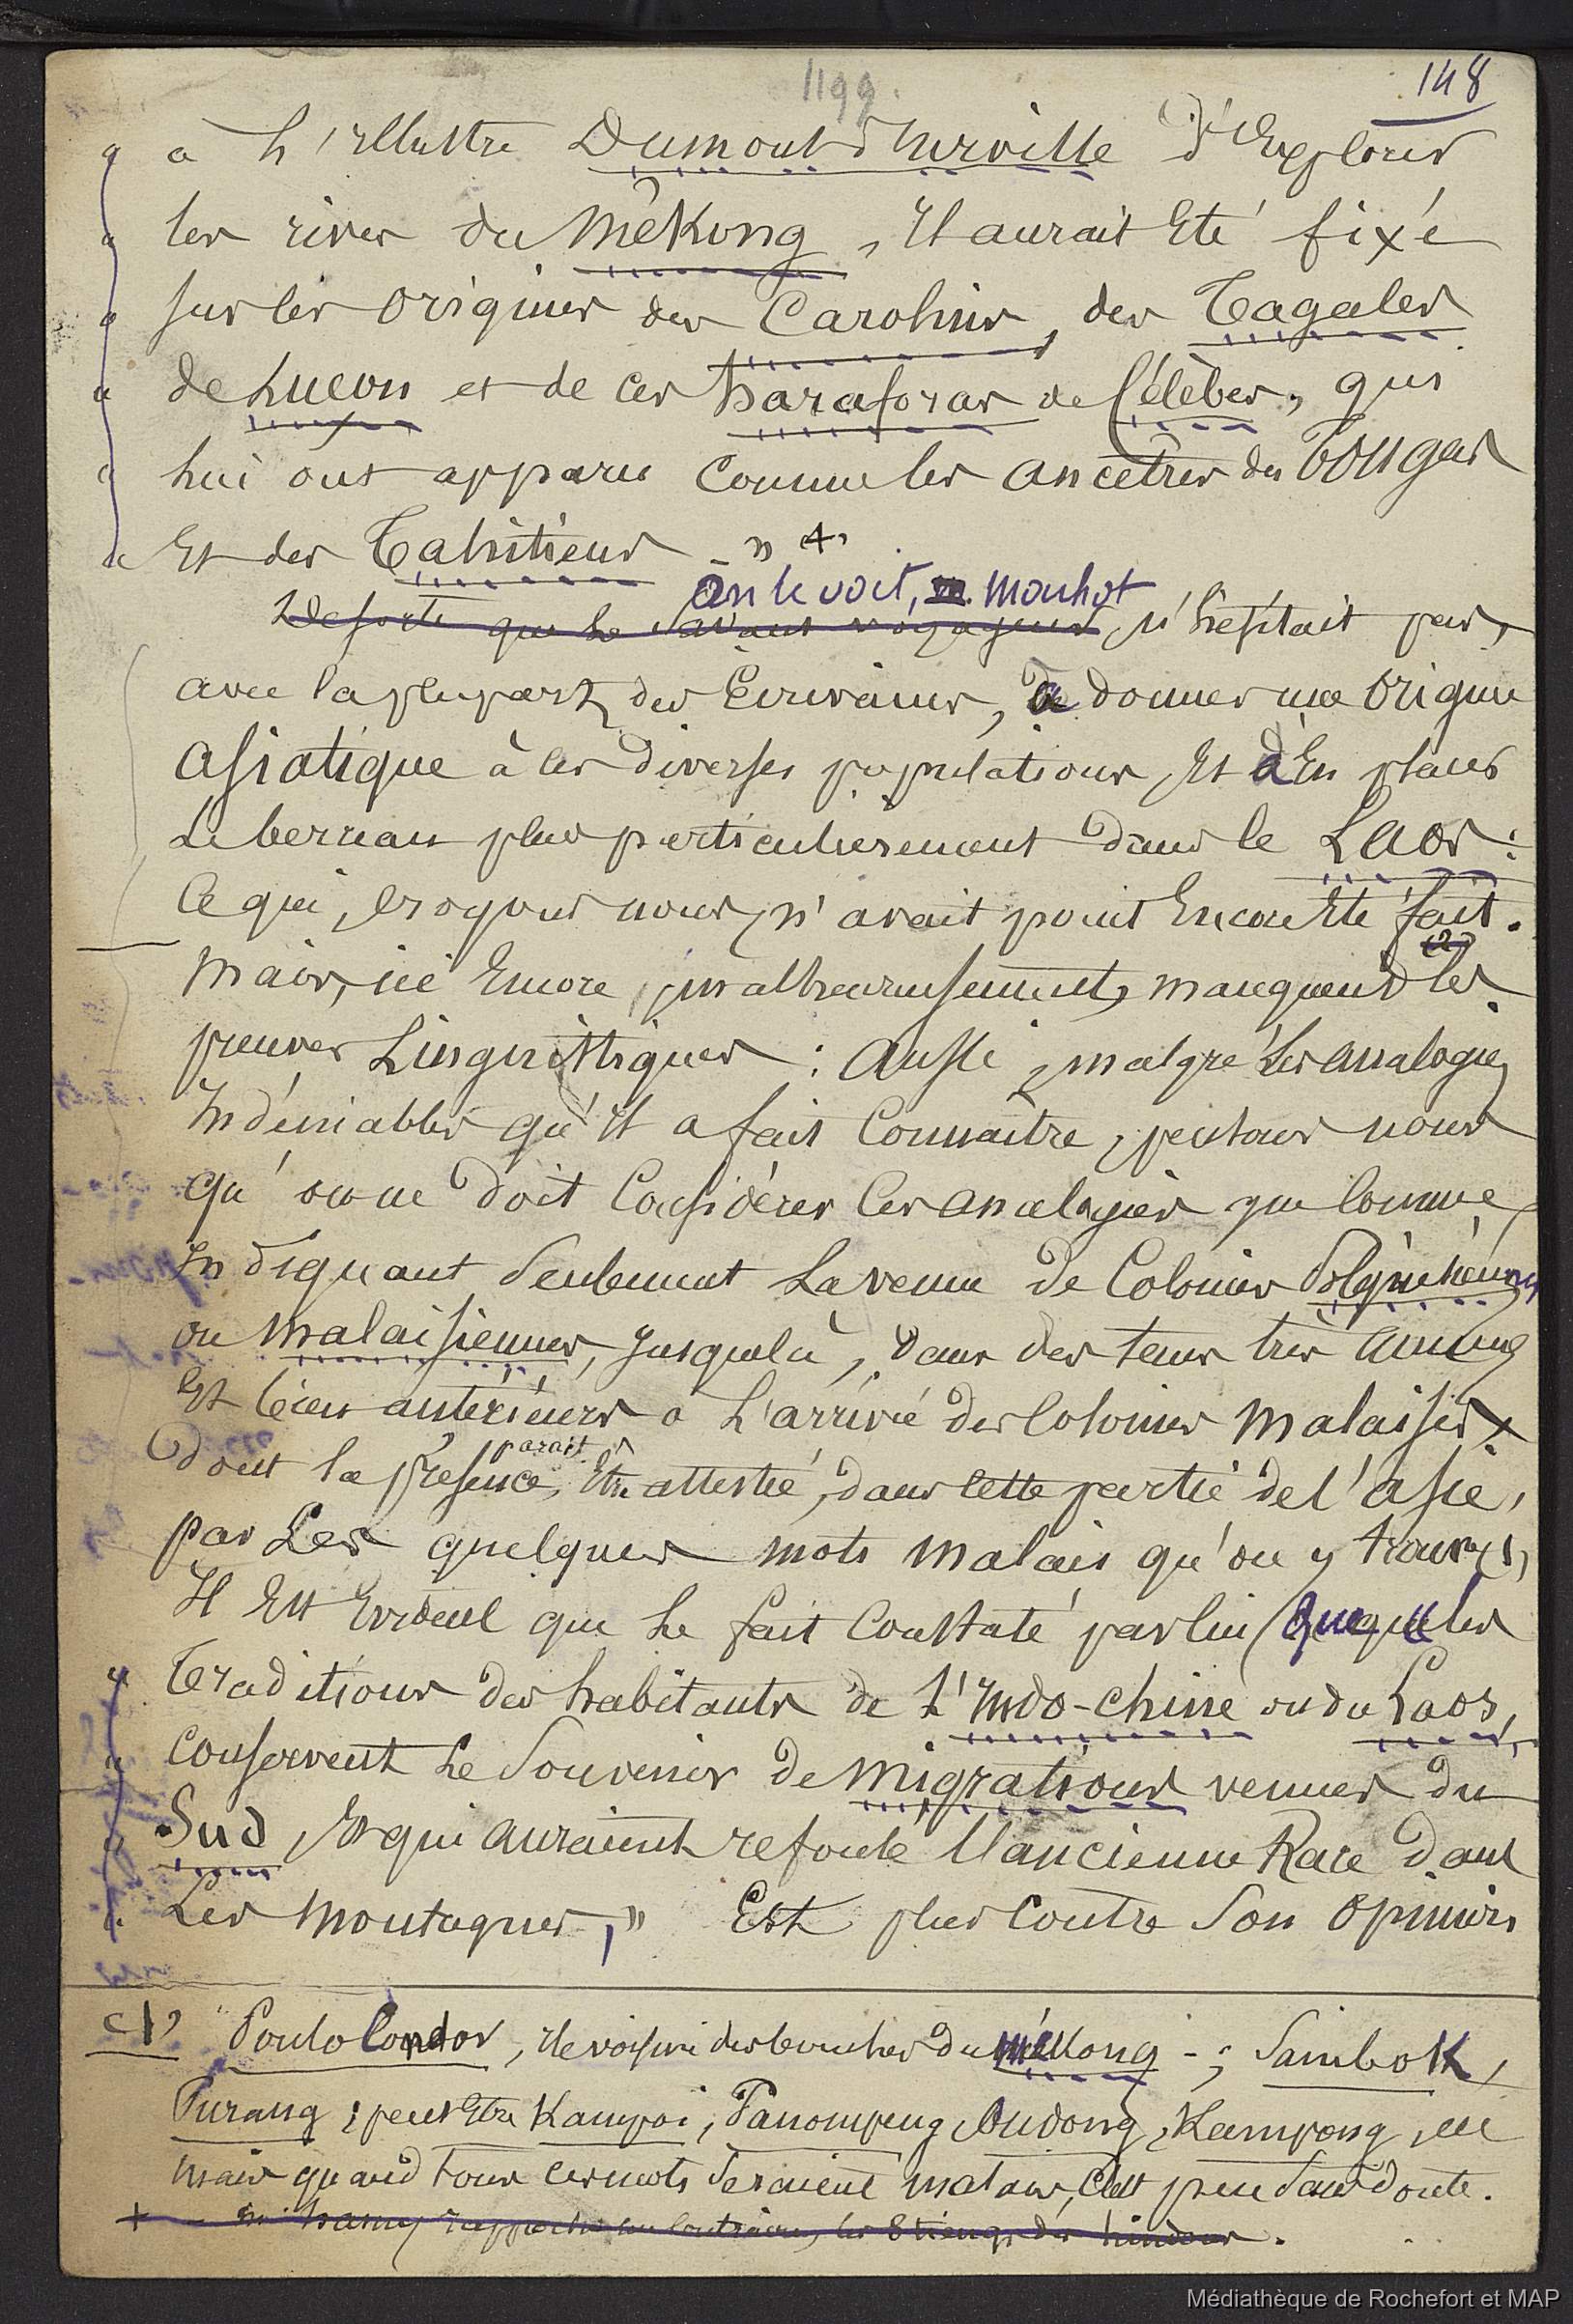 1199.
148
" à L'illustre Dumont d'Urville d'Explorer
" les rives du Mékong, Il aurait Eté fixé
" sur les origines des Carolins, des Tagales
" de Luçon et de ces haraforas de Célèbes, qui
" lui ont apparu comme les ancêtres des Tongas
" Et des Tahitiens - " +
on le voit, M. Mouhot
De sorte que le Savant voyageur n'hésitait pas,
avec la plupart des Ecrivains, à donner une origine
asiatique à ces diverses populations, Et à En placer
Le berceau plus particulièrement dans le Laos :
Ce qui, croyons nous, n'avait point Encore Eté fait.
(2)
Mais, ici Encore, malheureusement, manquent les
preuves Linguistiques : Aussi, malgré les analogies
Indéniables qu'Il a fait Connaître, pensons nous
qu'on ne doit Considérer ces analogies que comme
Indiquant Seulement La venue de Colonies Polynésiennes
ou Malaisiennes, Jusque là, dans des tems très anciens
Et bien antérieurs à L'arrivée des Colonies Malaises
dont la présence, paraît Etre attestée, dans cette partie de l'asie,
par Les quelques mots malais qu'on y trouve (1)
Il Est Evident que Le fait Constaté par lui "que les
" Traditions des habitants de L'Indo-Chine ou du Laos,
" conservent Le Souvenir de Migrations venues du
" Sud, Et qui auraient refoulé l'ancienne Race dans
" Les Montagnes," Est plus Contre Son Opinion
(1) Poulo Condor, Ile voisine des bouches du Mékong - ; Sambok,
Purang ; peut Etre Kampoi, Panompeng, Oudong, Kampong, etc
mais quand tous ces mots Seraient malais, C'est peu Sans doute.
+ - M. hamy rapproche au Contraire, les Stiengs des hindous.
Médiathèque de Rochefort et MAP